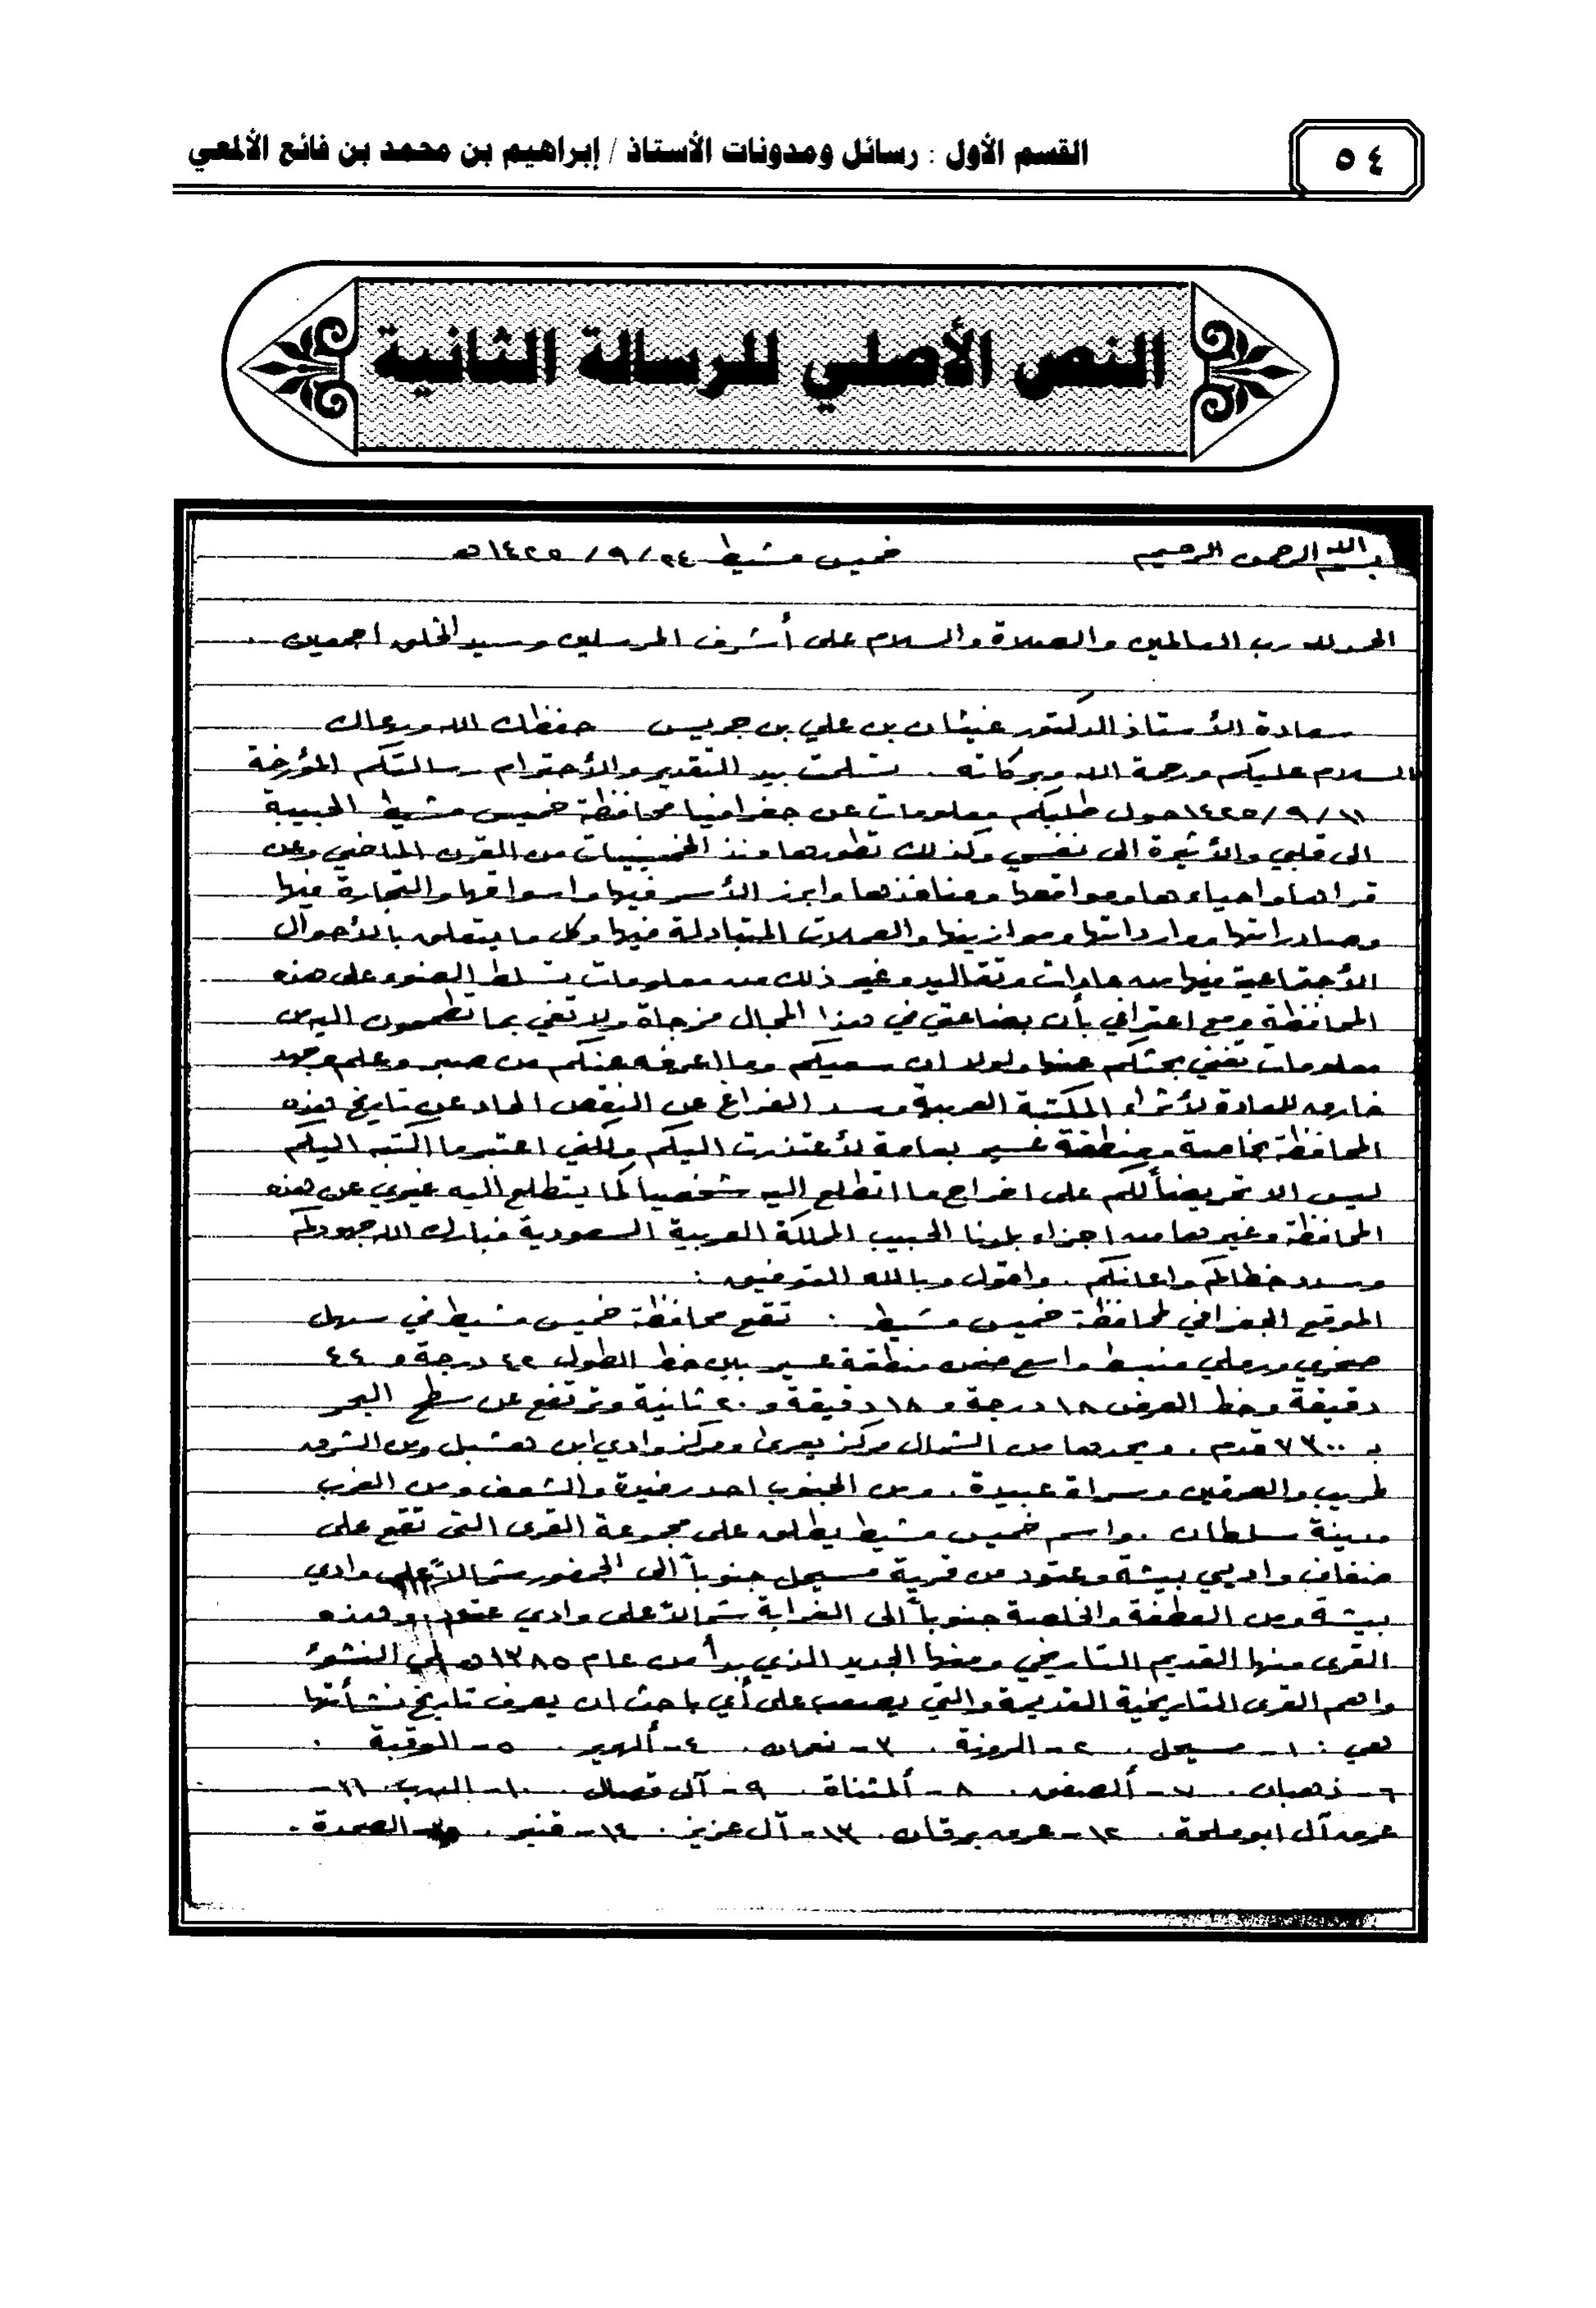 ٥٤
القسم الأول : رسائل ومدونات الأستاذ / إبراهيم بن محمد بن فائع الألمعي
النص الأصلي للرسالة الثانية
بسم الله الرحمن الرحيم خميس مشيط ٢٤/٩/١٤٢٥هـ
الحمد لله رب العالمين والصلاة والسلام على أشرف المرسلين وسيد الخلق اجمعين .
سعادة الأستاذ الدكتور غيثان بن علي بن جريس حفظك الله ورعاك
السلام عليكم ورحمة الله وبركاته . تسلمت بيد التقدير والأحترام رسالتكم المؤرخة
١١/٩/١٤٢٥ حول طلبكم معلومات عن جغرافيا محافظة خميس مشيط الحبيبة
الى قلبي والأثيرة الى نفسي وكذلك تطورها منذ الخمسينيات من القرن الماضي وعن
قراها واحياءها ومواقعها ومنافذها وابرز الأسر فيها واسواقها والتجارة فيها
وصادراتها ووارداتها وموازينها والعملات المتبادلة فيها وكل ما يتعلق بالأحوال
الأجتماعية فيها من عادات وتقاليد وغير ذلك من معلومات تسلط الضوء على هذه
المحافظة ومع اعترافي بأن بضاعتي في هذا المجال مزجاة ولا تفي بما تطمحون اليه من
معلومات تغني بحثكم عنها ولولا ان سعيكم وما اعرفه عنكم من صبر وعلم وجهد
خارق للعادة لأثراء المكتبة العربية وسد الفراغ عن النقص الحاد عن تاريخ هذه
المحافظة بخاصة ومنطقة عسير بعامة لأعتذرت اليكم ولكني اعتبر ما اكتبه اليكم
ليس الا تحريضاً لكم على اخراج ما اتطلع اليه شخصياً كما يتطلع اليه غيري عن هذه
المحافظة وغيرها من اجزاء بلدنا الحبيب المملكة العربية السعودية فبارك الله جهودكم
وسدد خطاكم واعانكم . واقول وبالله التوفيق :
الموقع الجغرافي لمحافظة خميس مشيط : تقع محافظة خميس مشيط في سهل
صخري ورملي منبسط واسع ضمن منطقة عسير بين خط الطول ٤٢ درجة و ٤٤
دقيقة وخط العرض ١٨ درجة و ١٨ دقيقة و ٢٠ ثانية وترتفع عن سطح البحر
بـ ٧٣٠٠ قدم . ويحدها من الشمال مركز يعرى ومركز وادي ابن هشبل ومن الشرق
طريب والعرقين وسراة عبيدة . ومن الجنوب احد رفيدة والشعف ومن الغرب
مدينة سلطان . واسم خميس مشيط يطلق على مجموعة القرى التي تقع على
ضفاف واديي بيشة وعتود من قرية مسيحل جنوباً الى الجضور شمالاً على وادي
بيشة ومن العطفة والخلصة جنوباً الى الغرابة شمالاً على وادي عتود ، وهذه
القرى منها القديم التاريخي ومنها الجديد الذي بدأ من عام ١٣٨٥هـ في النشوء
واهم القرى التاريخية القديمة والتي يصعب على أي باحث ان يعرف تاريخ نشأتها
هي : ١- مسيحل . ٢- الرونة . ٣- نعمان . ٤- ألهرير . ٥- الوقبة .
٦- ذهبان . ٧- ألصفق . ٨- ألمثناة . ٩- آل قصال . ١٠- الدرب . ١١-
عرق آل ابو ملحة . ١٢- عرق برقان . ١٣- آل عزيز . ١٤- قنبر . الصمدة .